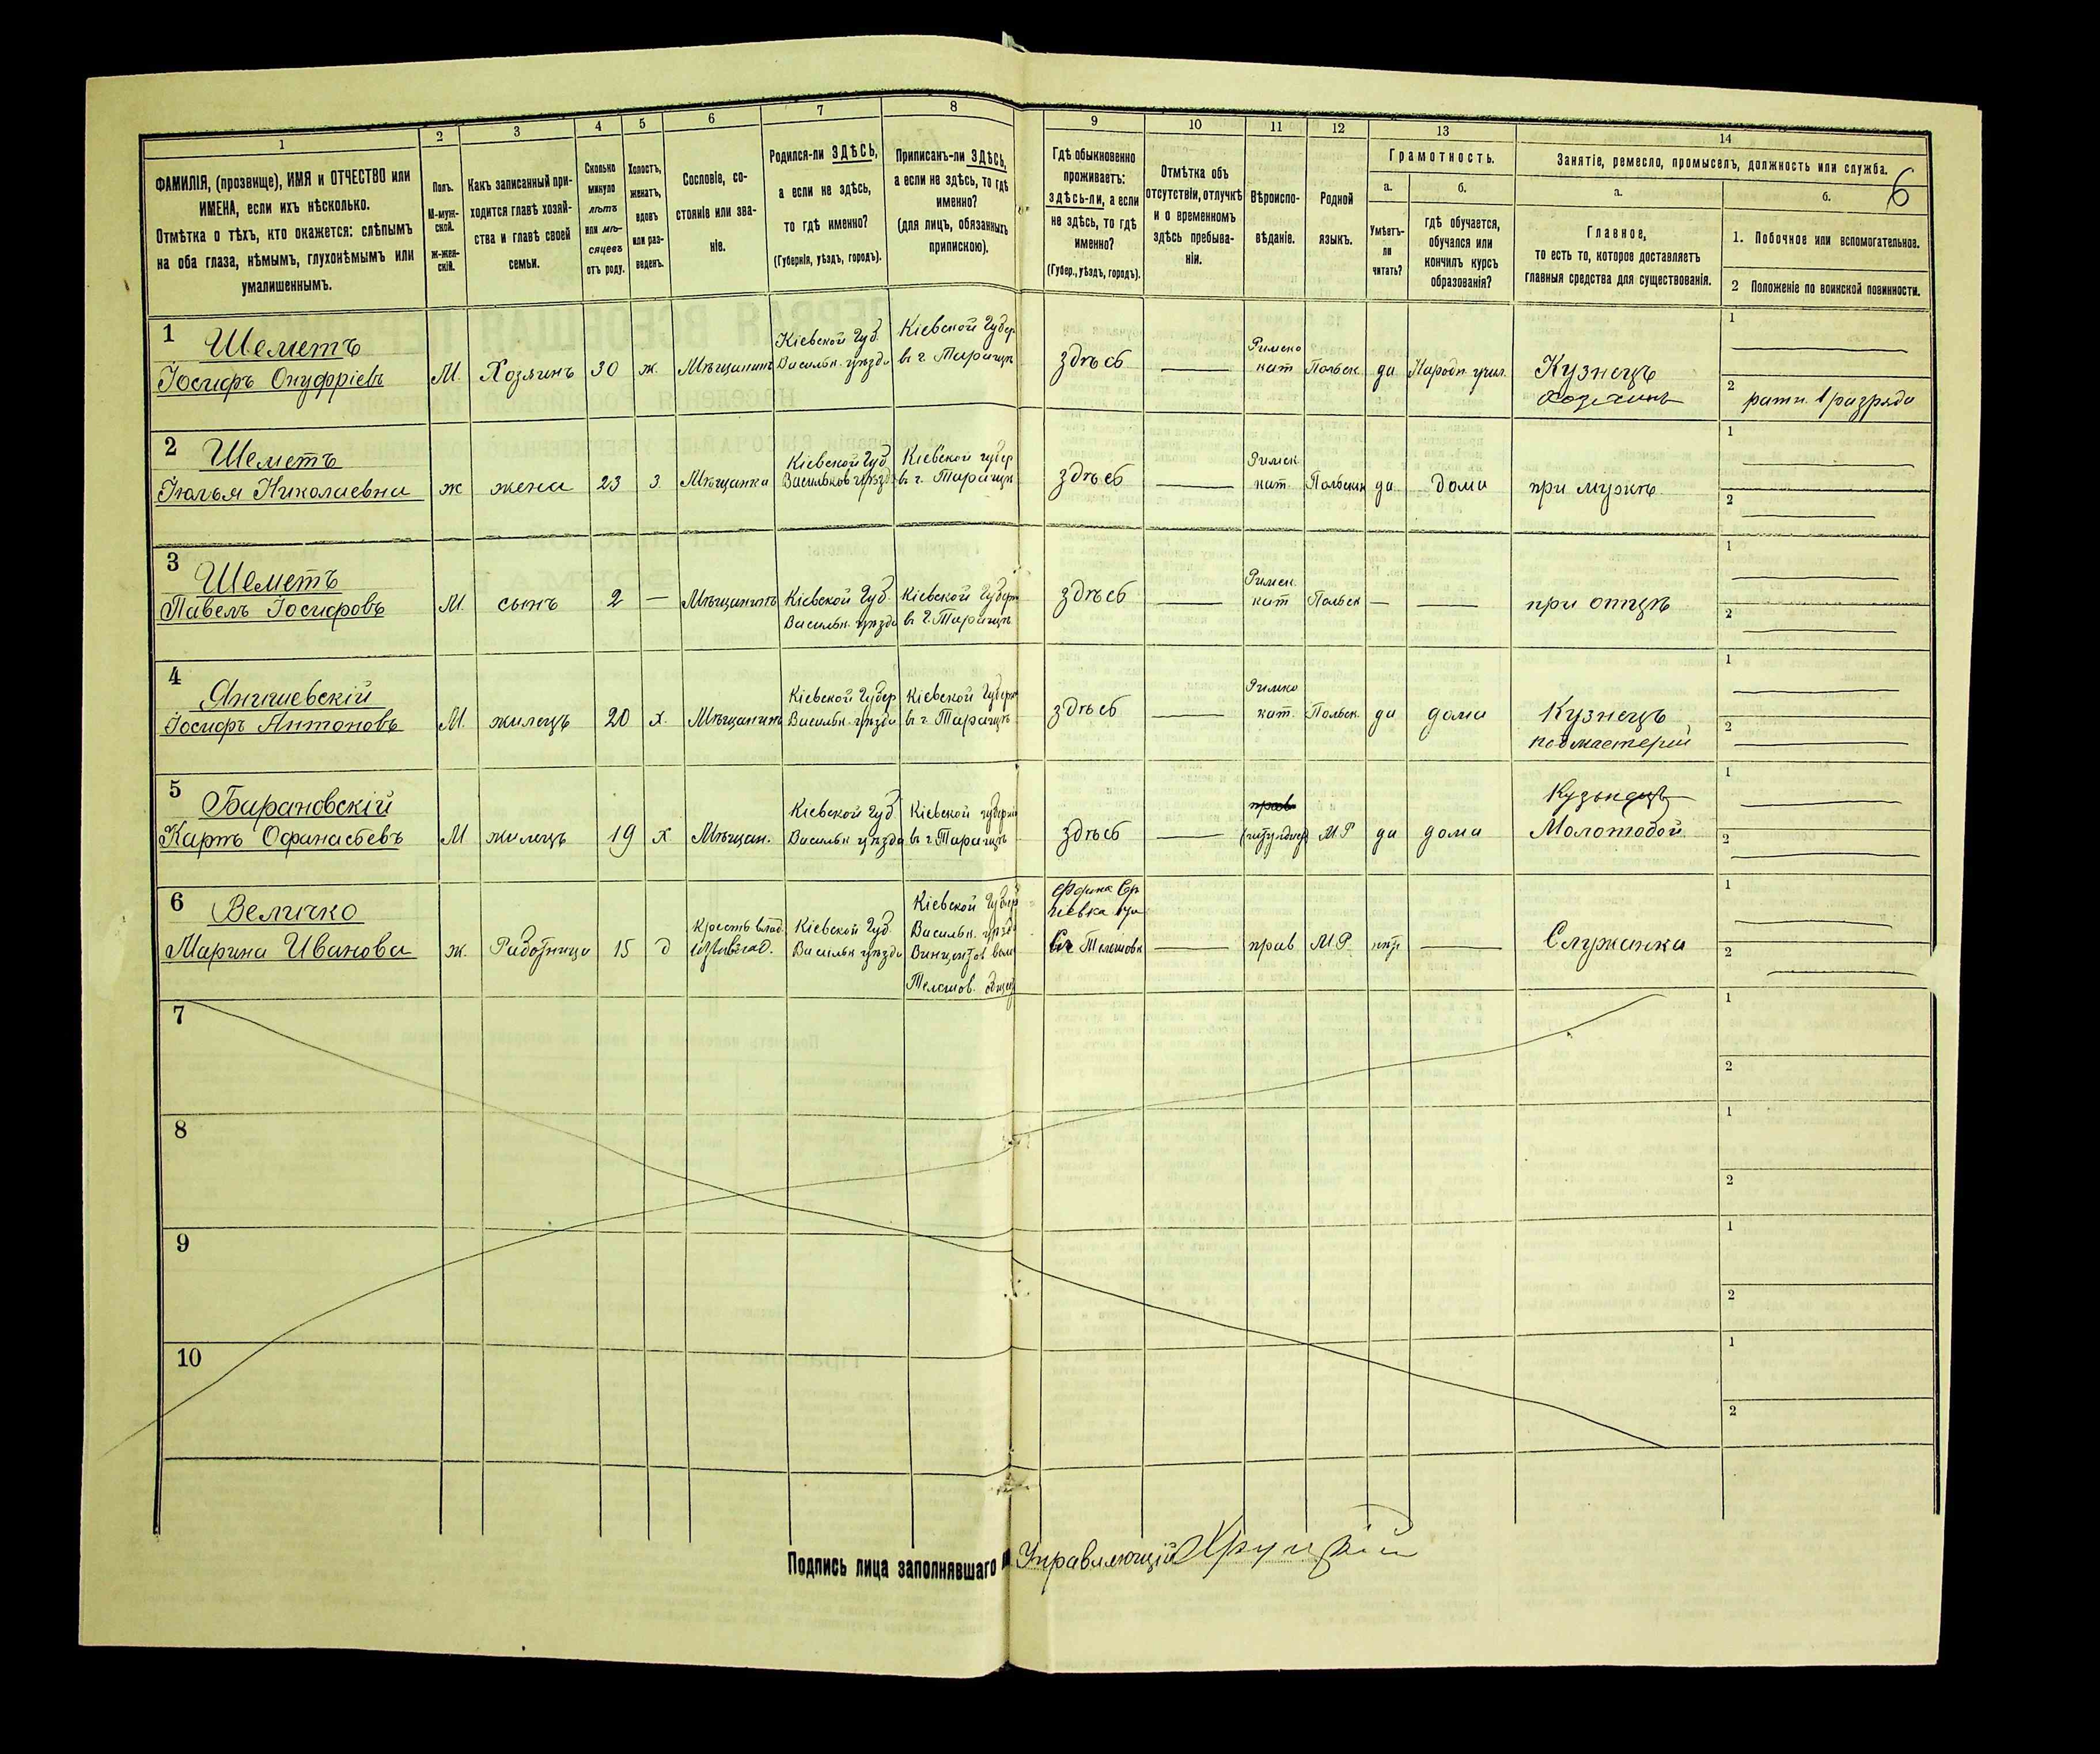 1
2
3
4
5
6
7
8
9
10
11
12
13
14
6
ФАМИЛІЯ, (прозвище), ИМЯ и ОТЧЕСТВО или
ИМЕНА, если ихъ нѣсколько.
Отмѣтка о тѣхъ, кто окажется: слѣпымъ
на оба глаза, нѣмымъ, глухонѣмымъ или
умалишеннымъ.
Полъ.
М-муж-
ской.
Ж-жен-
скій.
Какъ записанный при-
ходится главѣ хозяй-
ства и главѣ своей
семьи.
Сколько
минуло
лѣтъ
или мѣ-
сяцевъ
отъ роду.
Холостъ,
женатъ,
вдовъ
или раз-
веденъ.
Сословіе, со-
стояніе или зва-
ніе.
Родился-ли ЗДѢСЬ,
а если не здѣсь,
то гдѣ именно?
(Губернія, уѣздъ, городъ).
Приписанъ-ли ЗДѢСЬ,
а если не здѣсь, то гдѣ
именно?
(для лицъ, обязанныхъ
припискою).
Гдѣ обыкновенно
проживаетъ:
здѣсь-ли, а если
не здѣсь, то гдѣ
именно?
(Губер., уѣздъ, городъ).
Отмѣтка объ
отсутствіи, отлучкѣ
и о временномъ
здѣсь пребыва-
ніи.
Вѣроиспо-
вѣданіе.
Родной
языкъ.
Грамотность.
а.
б.
Умѣетъ-
ли
читать?
гдѣ обучается,
обучался или
кончилъ курсъ
образованія?
Занятіе, ремесло, промыселъ, должность или служба.
а.
б.
Главное,
то есть то, которое доставляетъ
главныя средства для существованія.
1. Побочное или вспомогательное.
2 Положеніе по воинской повинности.
1
Шеметъ
Іосифъ Онуфріевъ
М.
Хозяинъ
30
ж.
Мѣщанинъ
Кіевской Губ.
Васильк. уѣзда
Кіевской Губер
въ г. Таращѣ
здѣсь
Римско
кат
Польск.
да
Народн. учил.
Кузнецъ
хозяинъ
1
2 ратн. 1 разряда
2
Шеметъ
Юлья Николаевна
ж
жена
23
з.
Мѣщанка
Кіевской Губ
Васильков уѣзд
Кіевской губер
въ г. Таращѣ
здѣсь
Римск
кат.
Польскій
да
дома
при мужѣ
1
2
3
Шеметъ
Павелъ Іосифовъ
М.
сынъ
2
—
Мѣщанинъ
Кіевской Губ.
Васильк. уѣзда
Кіевской Губерн
въ г. Таращѣ
здѣсь
Римск.
кат
Польск
—
при отцѣ
1
2
4
Янишевскій
Іосифъ Антоновъ
М.
жилецъ
20
х.
Мѣщанинъ
Кіевской Губер
Васильк. уѣзда
Кіевской Губерн
въ г. Таращѣ
здѣсь
Римско
кат.
Польск.
да
дома
Кузнецъ
подмастерій
1
2
5
Барановскій
Карпъ Офанасьевъ
М
жилецъ
19
х
Мѣщан.
Кіевской Губ
Васильк уѣзда
Кіевской губерніи
въ г. Таращѣ
здѣсь
прав
М Р
да
дома
Кузнецъ
Молотобой
1
2
6
Величко
Марина Иванова
ж.
Работница
15
д
Крестъ
Кіевской Губ.
Васильк уѣзда
Кіевской Губер
Васильк. уѣзд.
Винцент. вол
Телешов. общес
Телешовк
прав
М Р.
нѣт
Служанка
1
2
7
1
2
8
1
2
9
1
2
10
1
2
Подпись лица заполнявшаго
Управляющій